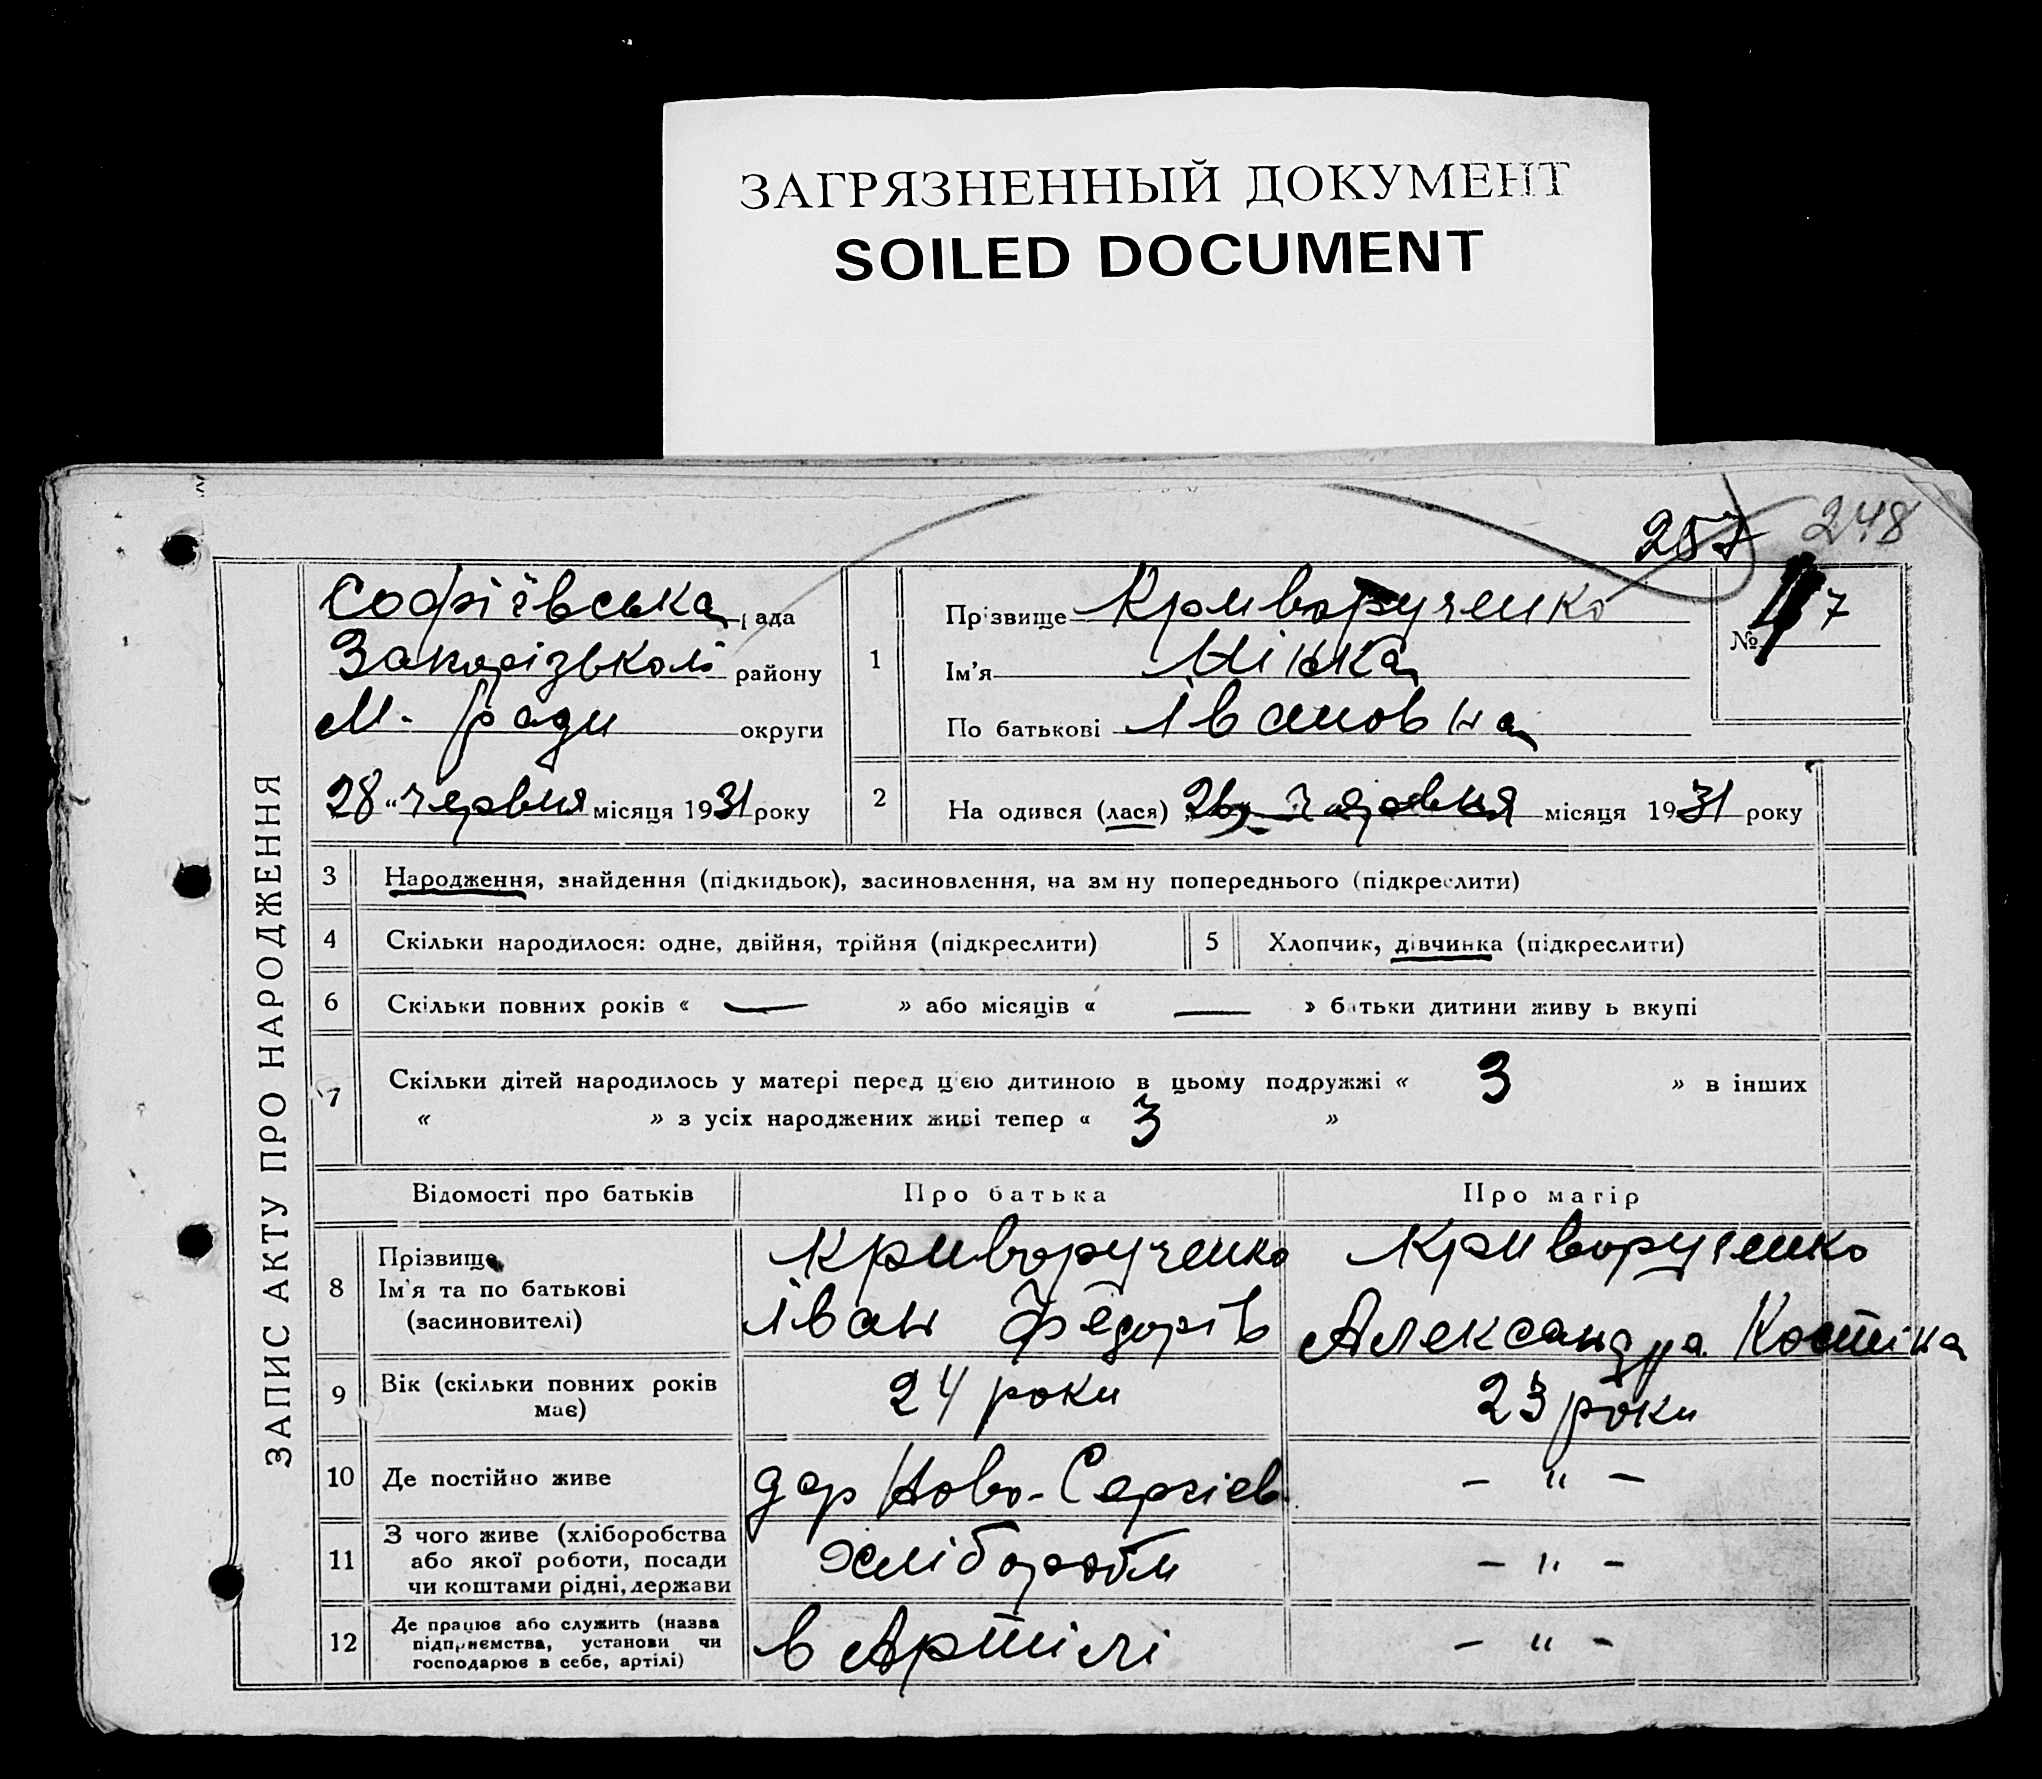 ЗАГРЯЗНЕННЫЙ ДОКУМЕНТ
SOILED DOCUMENT
257 248
ЗАПИС АКТУ ПРО НАРОДЖЕННЯ
Софіївська рада
Запорізької району
М. Ради округи
28 " червня місяця 1931 року
1 Прізвище Криворученко
Ім'я Нінка
По батькові Івановна
№ 7
2 На одився (лася) 26 червня місяця 1931 року
3 Народження, знайдення (підкидьок), засиновлення, на зм ну попереднього (підкреслити)
4 Скільки народилося: одне, двійня, трійня (підкреслити) 5 Хлопчик, дівчинка (підкреслити)
6 Скільки повних років « — » або місяців « — » батьки дитини живу ь вкупі
7 Скільки дітей народилось у матері перед цією дитиною в цьому подружжі « 3 » в інших
« » з усіх народжених живі тепер « 3 »
Відомості про батьків Про батька Про матір
8 Прізвище Криворученко Криворученко
Ім'я та по батькові
(засновителі) Іван Федорів Александра Костіна
9 Вік (скільки повних років
має) 24 роки 23 роки
10 Де постійно живе дер Ново-Сергієв. – " –
11 З чого живе (хліборобства
або якої роботи, посади
чи коштами рідні, держави хлібороби – " –
12 Де працює або служить (назва
підприємства, установи чи
господарює в себе, артілі) в Артілі – " –